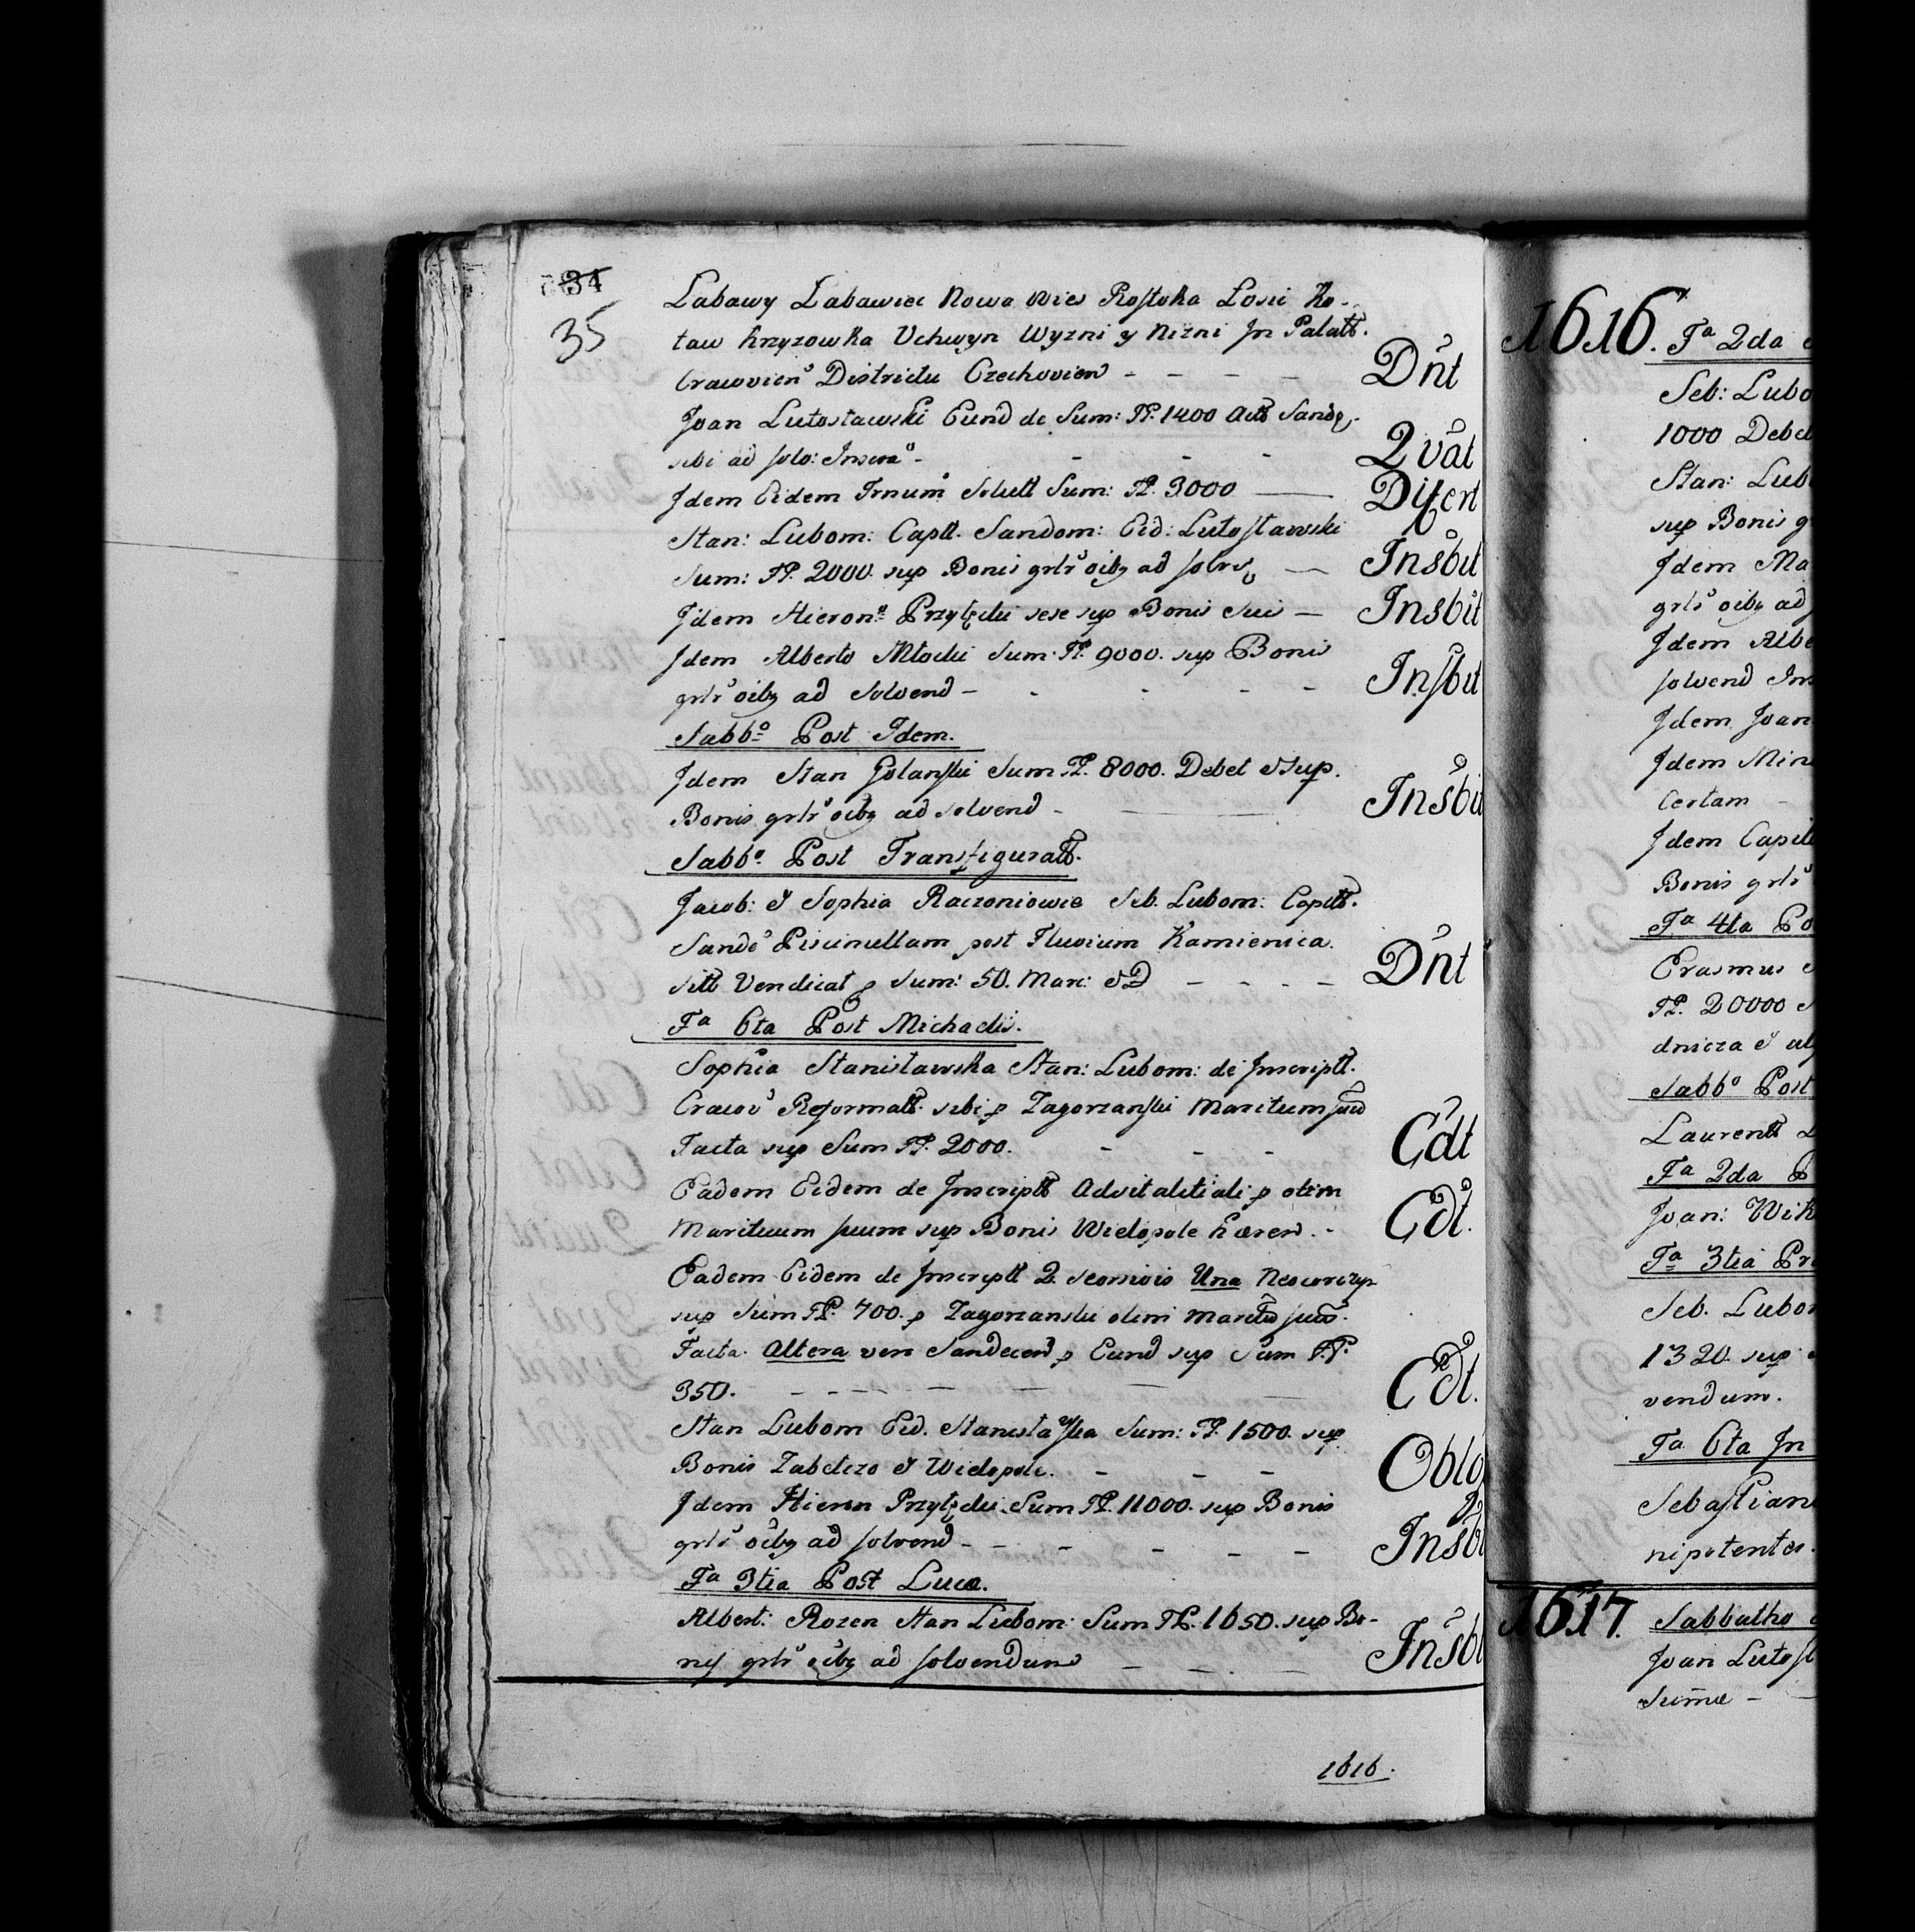 34
35
Labawy Labawiec Nowa Wies Rostoka Losie Ko-
taw Krzyzowka Uchwyn Wyzni y Nizni Jn Palatt.
Cracovien Districtu Czechovien - - - - Dnt
Joan Lutostawski Eund de Sum: FP. 1400 Acts Sande.
sibi ad solv: Inscra - - - - Qvat
Jdem Eidem Trnum Solutt Sum: FP. 3000 —
Stan: Lubom: Captt. Sandom: Eid: Lutostawski
Sum: FP. 2000. sup Bonis grlr oibq ad solv — Insbit
Jdem Hieron: Przyłęcki sese sup Bonis Suis — Insbit
Jdem Alberto Młocki Sum: FP. 9000. sup Bonis
grlr oibq ad Solvend - - - - - Insbit
Sabbo Post Idem.
Jdem Stan Golanski Sum FP. 8000. Debet sup.
Bonis grlr oibq ad solvend - — Insbit
Sabbo Post Transfiguratt.
Jacob: et Sophia Raczoniowie Seb. Lubom: Capitt.
Sande Piscinullam post Fluvium Kamienica
sitt Vendicat p Sum: 50. Marc: - - - - Dnt
Fa 6ta Post Michaelis.
Sophia Stanisławska Stan: Lubom: de Jnscriptt.
Cracov Reformatt. sibi p Zagorzanski Maritum suum
Facta sup Sum FP. 2000. - - - Cdt
Eadem Eidem de Jnscriptt Advitalitiali p olim
Maritum suum sup Bonis Wielopole - Cdt.
Eadem Eidem de Jnscriptt 2. Una
sup Sum FP. 700. p Zagorzanski olim
Facta. Altera vero Sandecen p Eund sup Sum FP.
350. - - - - - — — — Cdt.
Stan Lubom Eid. Stanisławska Sum: FP. 1500. sup
Bonis Zabełczo et Wielopole. - - - Oblg
Jdem Hieron Przyłęcki Sum FP. 11000. sup Bonis
grlr oibq ad solvend - - - - - - Insbt
Fa 3tia Post Lucæ.
Albert: Rozen Stan Lubom: Sum FP. 1650. sup Bo-
nis grlr oibq ad solvendum — — . — Insbt
1616.
1616. Fa 2da
Seb: Lubo
1000 Debet
Stan: Lub
sup Bonis g
Jdem Ma
grlr oibq ad
Jdem Albe
solvend Ins
Jdem Joan
Jdem Min
Certam -
Jdem Capit
Bonis grlr
Fa 4ta Po
Erasmus
FP. 20000
dnicza et
Sabbo Post
Laurentt
Fa 2da P
Joan: Wik
Fa 3tia Pr
Seb. Lubom
1320. sup
vendum.
Fa 6ta Jn
Sebastian
nipotentes.
1617. Sabbatho
Joan Lutosl
Sumæ -